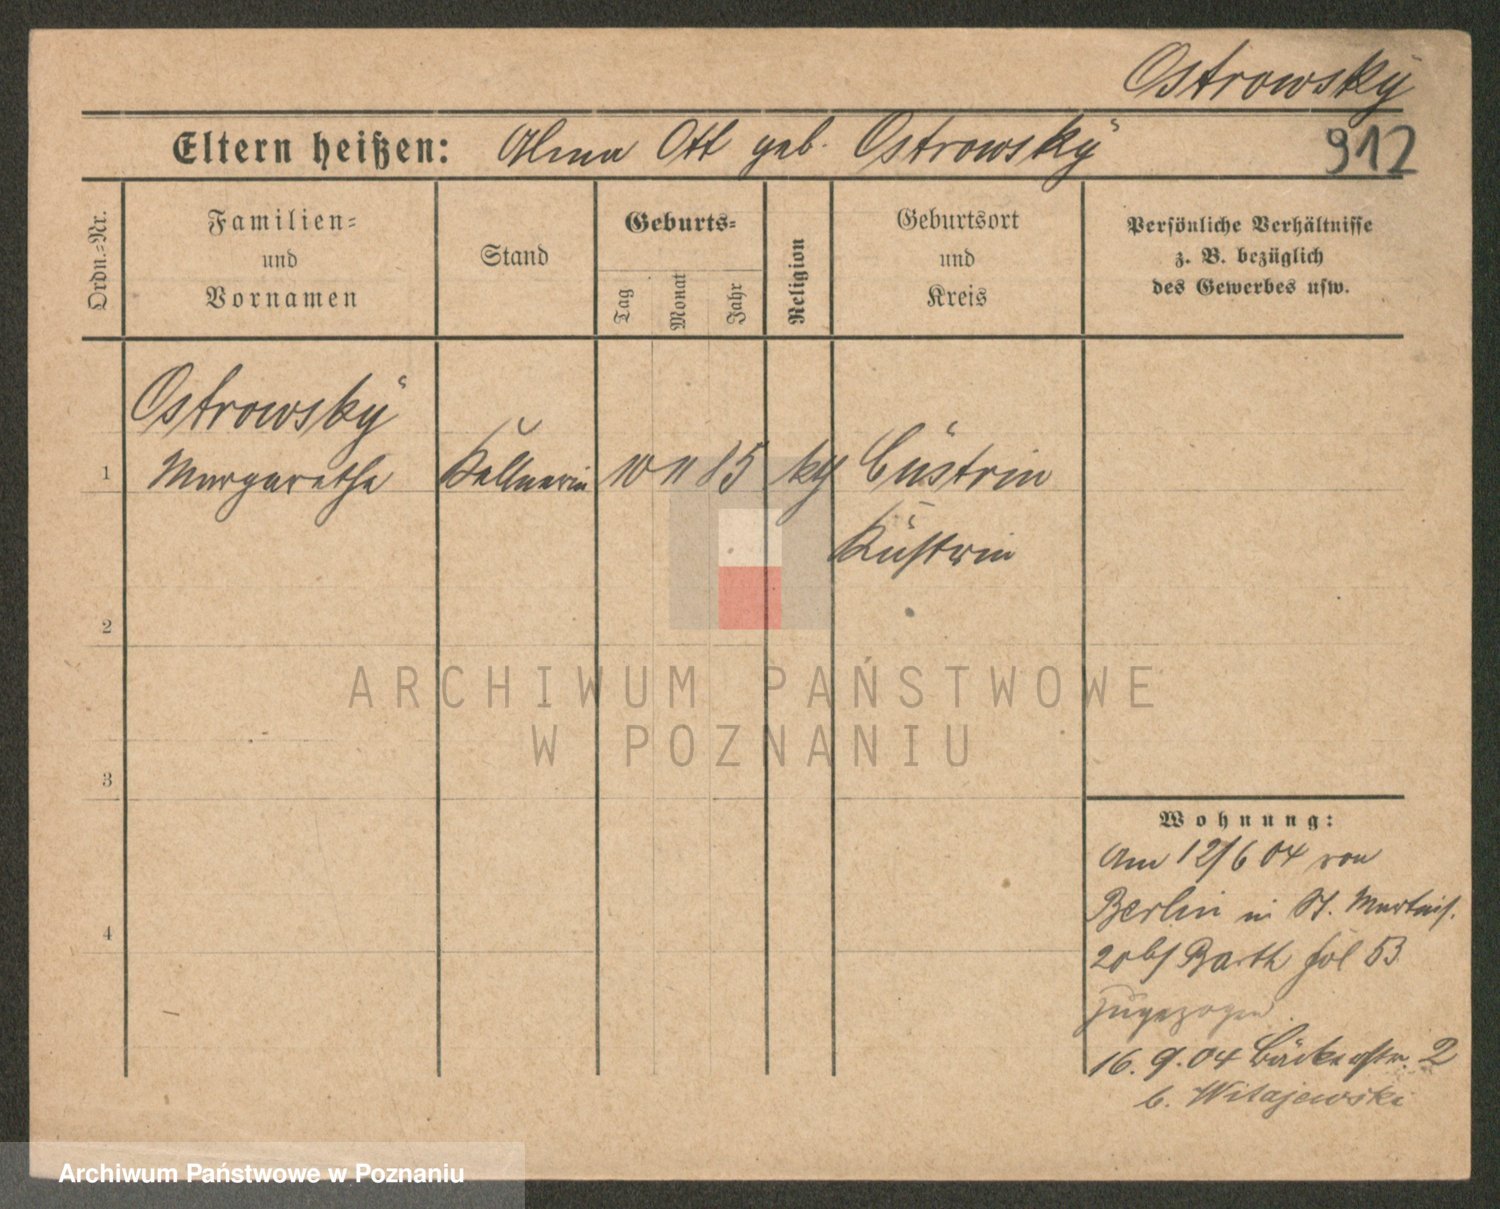 Ostrowsky
Eltern heißen: Alma Ott geb. Ostrowsky
912
Ordn.=Nr.
Familien=
und
Vornamen
Stand
Geburts=
Tag
Monat
Jahr
Religion
Geburtsort
und
Kreis
Persönliche Verhältnisse
z. B. bezüglich
des Gewerbes usw.
Ostrowsky
1 Margarethe Kellnerin 10 11 85 Cüstrin
Küstrin
2
3
4
Wohnung:
Am 12/6 04 von
Berlin in St. Martinst.
20 b/ Barth fol 53
zugezogen
16. 9. 04 Bäckerstr. 2
b. Witajewski
ARCHIWUM PAŃSTWOWE
W POZNANIU
Archiwum Państwowe w Poznaniu